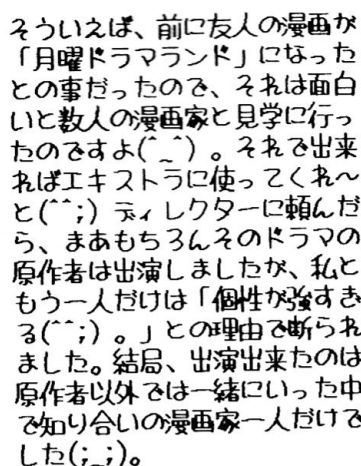 そういえば、前に友人の漫画が
「月曜ドラマランド」になった
との事だったので、それは面白
いと数人の漫画家と見学に行っ
たのですよ(^_^)。それで出来
ればエキストラに使ってくれ〜
と(^^;)ディレクターに頼んだ
ら、まあもちろんそのドラマの
原作者は出演しましたが、私と
もう一人だけは「個性が強すぎ
る(^^;)。」との理由で断られ
ました。結局、出演出来たのは
原作者以外では一緒にいった中
で知り合いの漫画家一人だけで
した(;_;)。